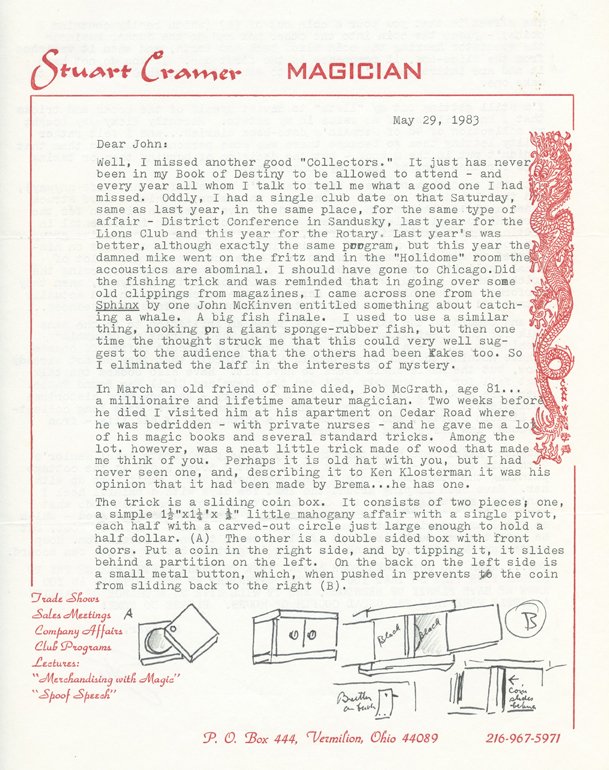 Stuart Cramer MAGICIAN
May 29, 1983
Dear John:
Well, I missed another good "Collectors." It just has never
been in my Book of Destiny to be allowed to attend - and
every year all whom I talk to tell me what a good one I had
missed. Oddly, I had a single club date on that Saturday,
same as last year, in the same place, for the same type of
affair - District Conference in Sandusky, last year for the
Lions Club and this year for the Rotary. Last year's was
better, although exactly the same program, but this year the
damned mike went on the fritz and in the "Holidome" room the
accoustics are abominal. I should have gone to Chicago.Did
the fishing trick and was reminded that in going over some
old clippings from magazines, I came across one from the
Sphinx by one John McKinven entitled something about catch-
ing a whale. A big fish finale. I used to use a similar
thing, hooking on a giant sponge-rubber fish, but then one
time the thought struck me that this could very well sug-
gest to the audience that the others had been fakes too. So
I eliminated the laff in the interests of mystery.
In March an old friend of mine died, Bob McGrath, age 81...
a millionaire and lifetime amateur magician. Two weeks before
he died I visited him at his apartment on Cedar Road where
he was bedridden - with private nurses - and he gave me a lot
of his magic books and several standard tricks. Among the
lot. however, was a neat little trick made of wood that made
me think of you. Perhaps it is old hat with you, but I had
never seen one, and, describing it to Ken Klosterman it was his
opinion that it had been made by Brema...he has one.
The trick is a sliding coin box. It consists of two pieces; one,
a simple 1½"x1¼'x "little mahogany affair with a single pivot,
each half with a carved-out circle just large enough to hold a
half dollar. (A) The other is a double sided box with front
doors. Put a coin in the right side, and by tipping it, it slides
behind a partition on the left. On the back on the left side is
a small metal button, which, when pushed in prevents the coin
from sliding back to the right (B).
A
Black
Black
B
Button
on back
Coin
slides
behind
Trade Shows
Sales Meetings
Company Affairs
Club Programs
Lectures:
"Merchandising with Magic"
"Spoof Speech"
P. O. Box 444, Vermilion, Ohio 44089 216-967-5971